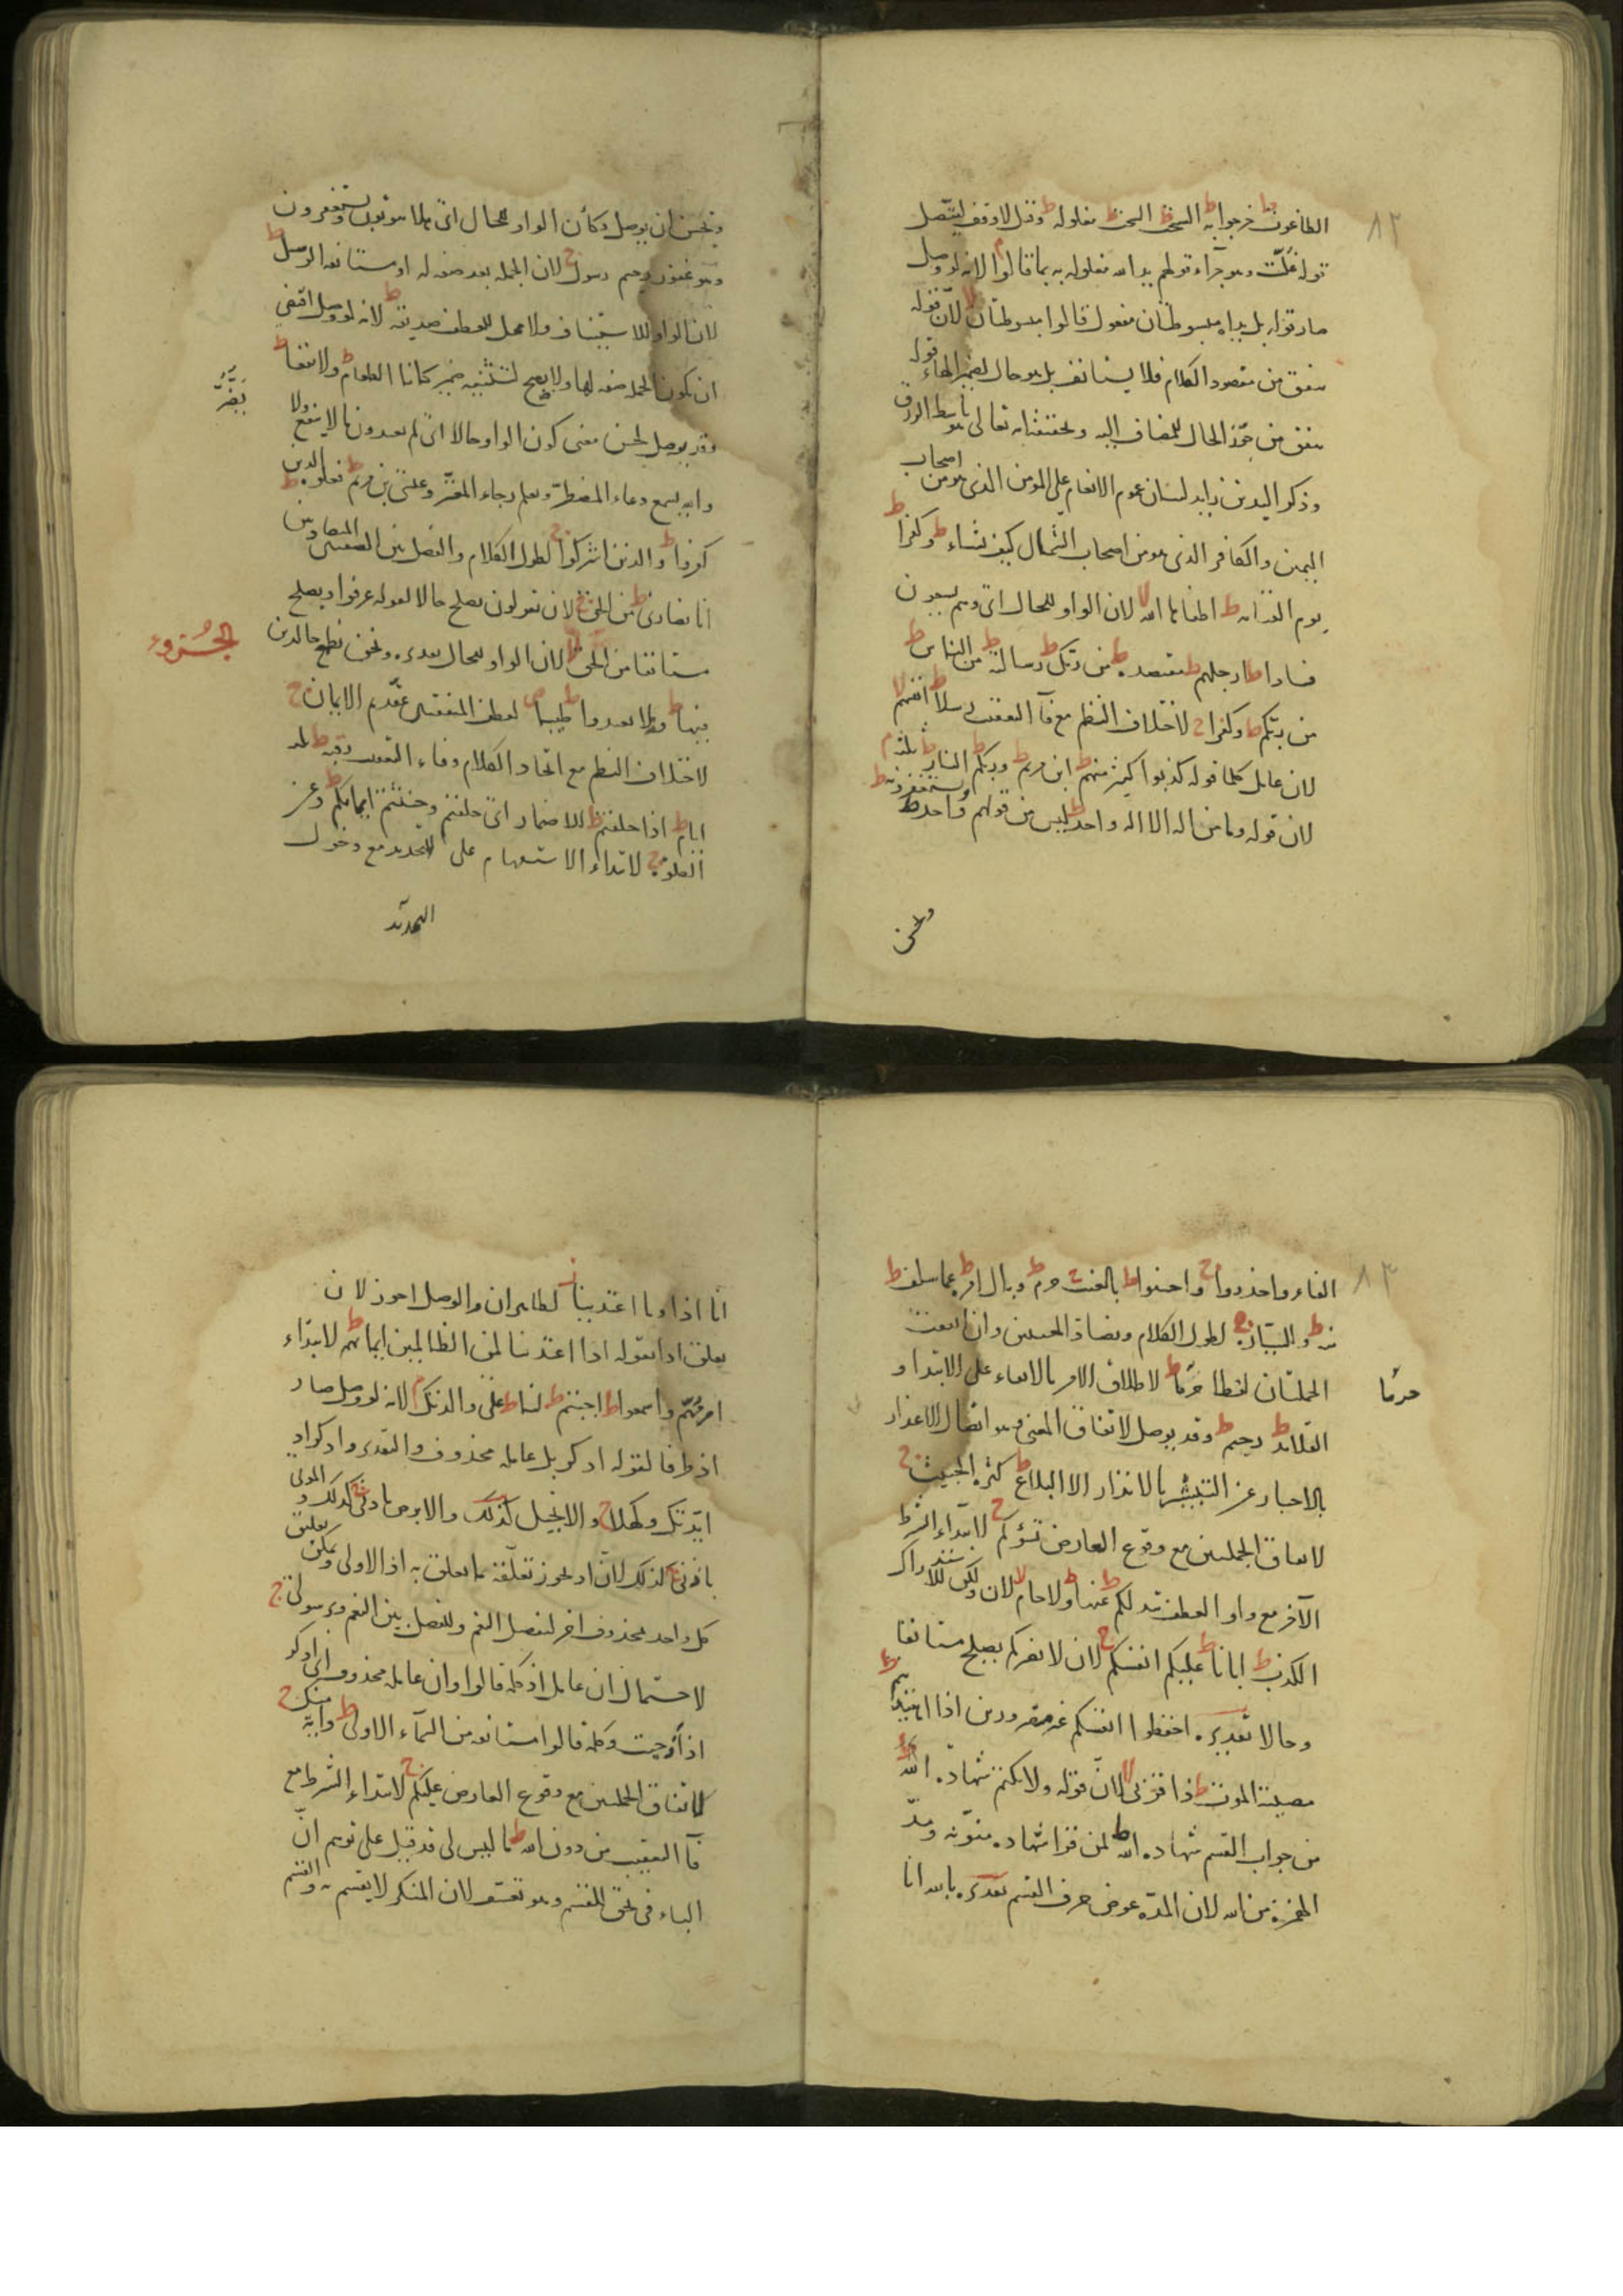 ٨٢
الطاغوت ط خرجوا به ط السحت ط السحت ط مغلولة ط وقيل لا وقف ليتصل
قوله غلت وهو جزاء قولهم يد الله مغلولة به بما قالوا م لانه لو وصل
صار قوله بل يداه مبسوطتان مفعول قالوا مبسوطتان لا لان قوله
ينفق من مقصود الكلام فلا يستانف بل هو حال لضمير الهاء قوله
ينفق من الحال للمضاف اليه وتحقيقه انه تعالى باسط الرزق
وذكر اليدين زايد لبيان عموم الانعام على المؤمن الذي هو من اصحاب
اليمين والكافر الذي هو من اصحاب الشمال كيف يشاء ط وكفرا ط
يوم القيامة ط اطفاها الله لا لان الواو للحال اي وهم يسعون
فسادا ط ارجلهم ط مقتصدة ط من ربك ط رسالته ط من الناس ط
من ربكم ط وكفرا ج لاختلاف النظم مع فاء التعقيب رسلا ط انفسهم لا
لان عامل كلما قوله كذبوا كثير منهم ط ابن مريم ط وربكم ط النار ط ثلثة م
لان قوله وما من اله الا اله واحد ليس من قولهم واحد ط ويستغفرونه ط
وتحسن
وتحسن ان يوصل وكأن الواو للحال اي هلا يتوبون ويستغفرون
وهو غفور رحيم رسول ج لان الجملة بعد صفة له او مستانفة الرسل ط
لان الواو للاستيناف ولا محل للعطف صديقة ط لانه لو وصل اقتضى
ان تكون الجملة صفة لها ولا يصح لتثنية ضمير كانا الطعام ط ولا نفعا ط
وقد يوصل لحسن معنى كون الواو حالا اي لم تعبدون ما لا ينفع ولا
يضر
وانه يسمع دعاء المضطر ويعلم رجاء المعتر وعيسى بن مريم ط فعلوه ط
كفروا ط والذين اشركوا ج لطول الكلام والفصل بين
انا نصارى ط من الحق ج لان يقولون يصلح حالا لقوله عرفوا ويصلح
مستانفا من الحق لا لان الواو للحال تقديره ونحن نطمع خالدين
الجزوء
فيها ط ولا تعتدوا ط طيبا ص لعطف المتفقتين الايمان ج
لاختلاف النظم مع اتحاد الكلام وفاء التعقيب رقبة ط
ايام ط اذا حلفتم ط للاضمار اي حلفتم وحنثتم ايمانكم ط وعن
الصلوة ج لابتداء الاستفهام على التحديد مع دخول
التهديد
٨٣
الفاء واحذروا ج واحسنوا ط بالغيب ج حرم ط وبال امره ط عما سلف ط
منه ط وللسيارة ج لطول الكلام وتضاد المعنيين وان اتفقت
الجملتان لفظا حرما ط لاطلاق الامر بالاتقاء على الابتداء و
حرما
القلائد ط رحيم ط وقد يوصل لاتفاق المعنى وهو اتصال الاعذار
بالاخبار عن التبشير بالانذار الا البلاغ ط كثرة الخبيث ج
لاتفاق الجملتين مع وقوع العارض تسؤكم ج لابتداء الشرط
الآخر مع واو العطف تبد لكم ط عنها ط ولا حام لا لان ولكن للاستدراك
الكذب ط اباءنا ط عليكم انفسكم ج لان لا يضركم يصلح مستانفا
وحالا تقديره احفظوا انفسكم غير مضرورين اذا اهتديتم ط
مصيبة الموت ط ذا قربى لا لان قوله ولا نكتم شهادة الله
من جواب القسم شهادة ط الله لمن قرا شهادة منونه ومد
الهمزة من الله لان المدة عوض حرف القسم تقديره بالله انا
انا اذا وما اعتدينا ز لظاهر ان والوصل اجوز لان
تعلق اذا بقوله اذا اعتدينا لمن الظالمين ايمانهم ط لابتداء
امرهم واسمعوا ط اجبتم ط لنا ط على والدتك م لانه لو وصل صار
اذ ظرفا لقوله اذكر بل عامله محذوف والتقدير واذكر اذ
ايدتك وكهلا ج والانجيل ج كذلك والابرص باذنى ج كذلك الموتى
باذنى ج كذلك لان اذ يجوز تعلقه بما تعلق به اذ الاولى ويمكن تعلق
كل واحد بمحذوف اخر لتفصيل النعم وللفصل بين النعم وبرسولى ج
لاحتمال ان عامل اذ كلمة قالوا وان عامله محذوف اي اذكر
اذ اوحيت وكلمة قالوا مستانفة من السماء الاولى ط واية منك ج
لاتفاق الجملتين مع وقوع العارض عليكم ج لابتداء الشرط مع
فاء التعقيب من دون الله ط ما ليس لى قد قيل على توهم ان
الباء في بحق للقسم وهو تعسف لان المنكر لا يقسم به والقسم